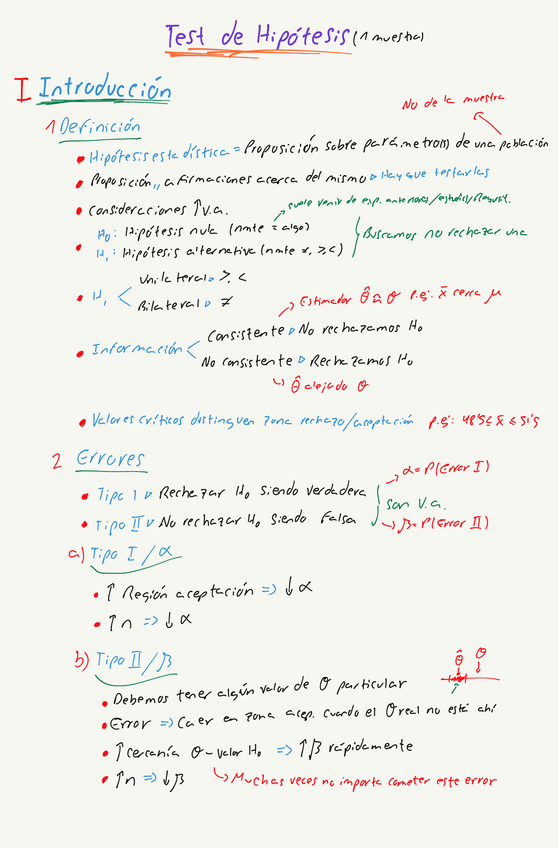 Test de Hipótesis (1 muestra)
I Introducción
No de la muestra
1 Definición
• Hipótesis estadística = Proposición sobre parámetro(s) de una población
• Proposición,, afirmaciones acerca del mismo ▷ Hay que testarlas
• Consideraciones ↑ v.a.
suele venir de esp. anteriores/estudios/
• H₀: Hipótesis nula (nmte = algo)
H₁: Hipótesis alternativa (nmte ≠, >, <)
Buscamos no rechazar una
• H₁ < Unilateral ▷ >, <
Bilateral ▷ ≠
→ Estimador θ̂ ≈ θ p.ej: x̄ cerca μ
• Información < Consistente ▷ No rechazamos H₀
No consistente ▷ Rechazamos H₀
↳ θ̂ alejado θ
• Valores críticos distinguen zona rechazo/aceptación p.ej: 48'5 ≤ x̄ ≤ 51'5
2 Errores
→ α = P(Error I)
• Tipo I ▷ Rechazar H₀ siendo verdadera
Son V.a.
• Tipo II ▷ No rechazar H₀ siendo falsa
→ β = P(Error II)
a) Tipo I / α
• ↑ Región aceptación => ↓ α
• ↑ n => ↓ α
b) Tipo II / β
θ̂ θ
• Debemos tener algún valor de θ particular
• Error => Caer en zona acep. cuando el θ real no está ahí
• ↑ cercanía θ - valor H₀ => ↑ β rápidamente
• ↑ n => ↓ β ↳ Muchas veces no importa cometer este error